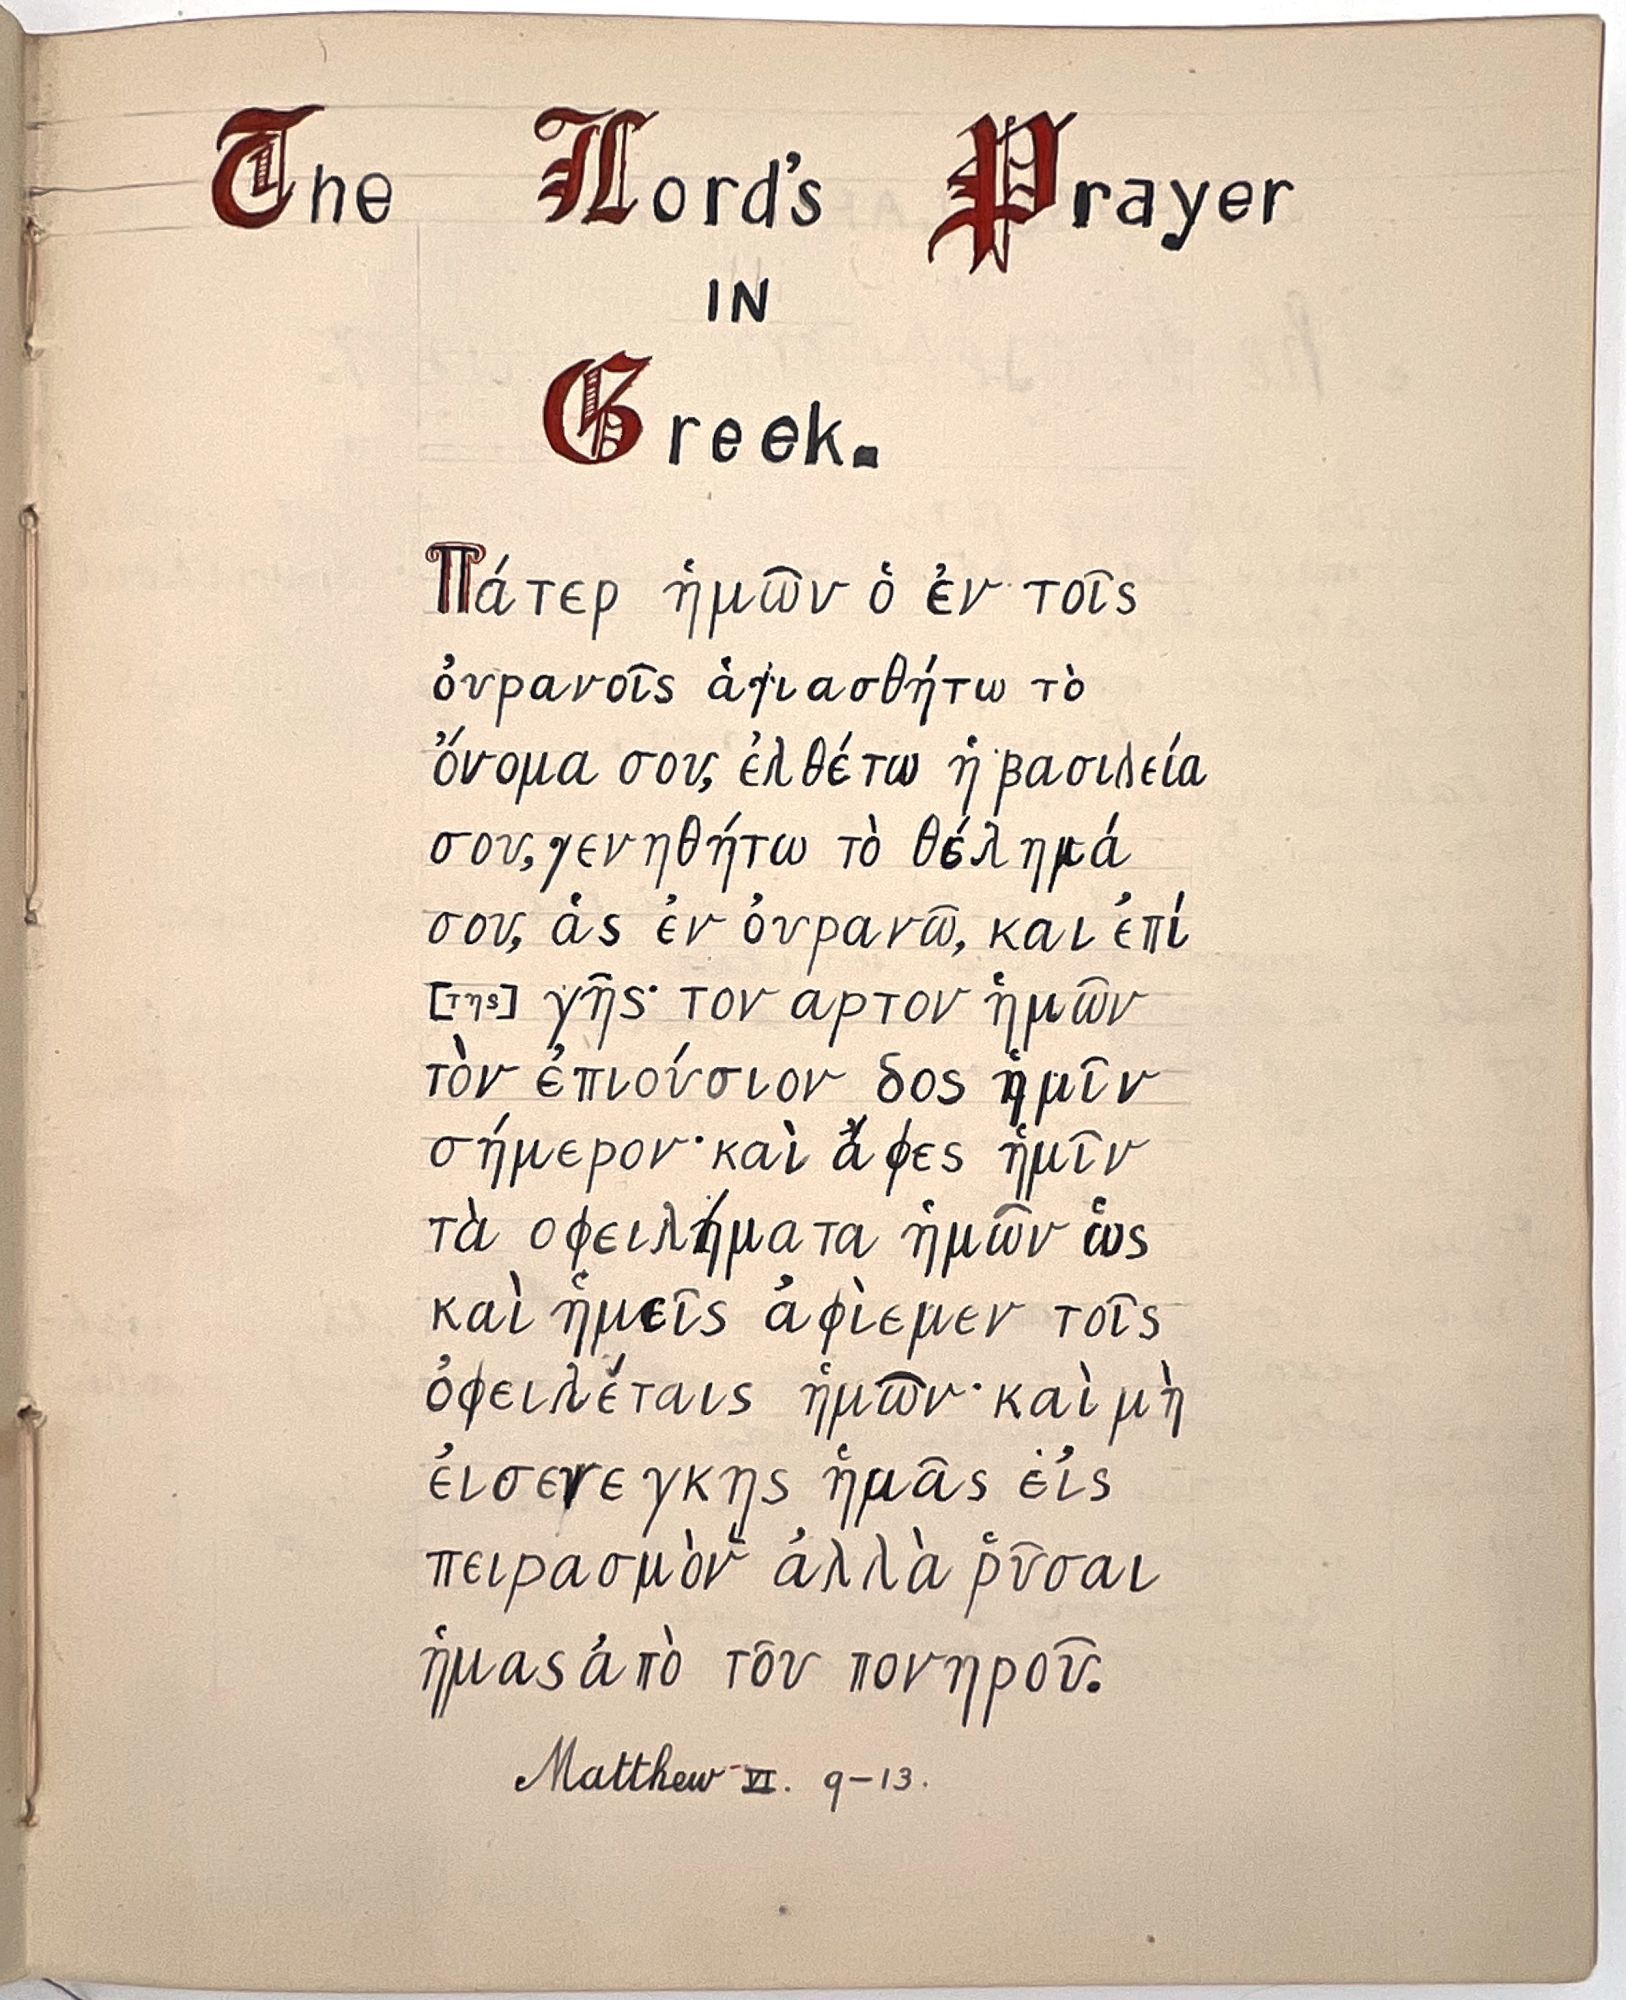 The Lord's Prayer
IN
Greek.
Πάτερ ἡμῶν ὁ ἐν τοῖς
ὀυρανοῖς ἁγιασθήτω τὸ
ὄνομα σου, ἐλθέτω ἡ βασιλεία
σου, γενηθήτω τὸ θέλημά
σου, ἁς ἐν ὀυρανῶ, και ἐπί
[της] γῆς· τον αρτον ἡμῶν
τὸν ἐπιούσιον δος ἡμῖν
σήμερον· καὶ ἄφες ἡμῖν
τὰ οφειλήματα ἡμῶν ὡς
καὶ ἡμεῖς ἀφὶεμεν τοῖς
ὀφειλέταις ἡμῶν· καὶ μὴ
ἐισενεγκης ἡμᾶς ἐἰς
πειρασμὸν ἀλλὰ ῥῦσαι
ἡμας ἀπὸ τοῦ πονηροῦ.
Matthew VI. 9-13.